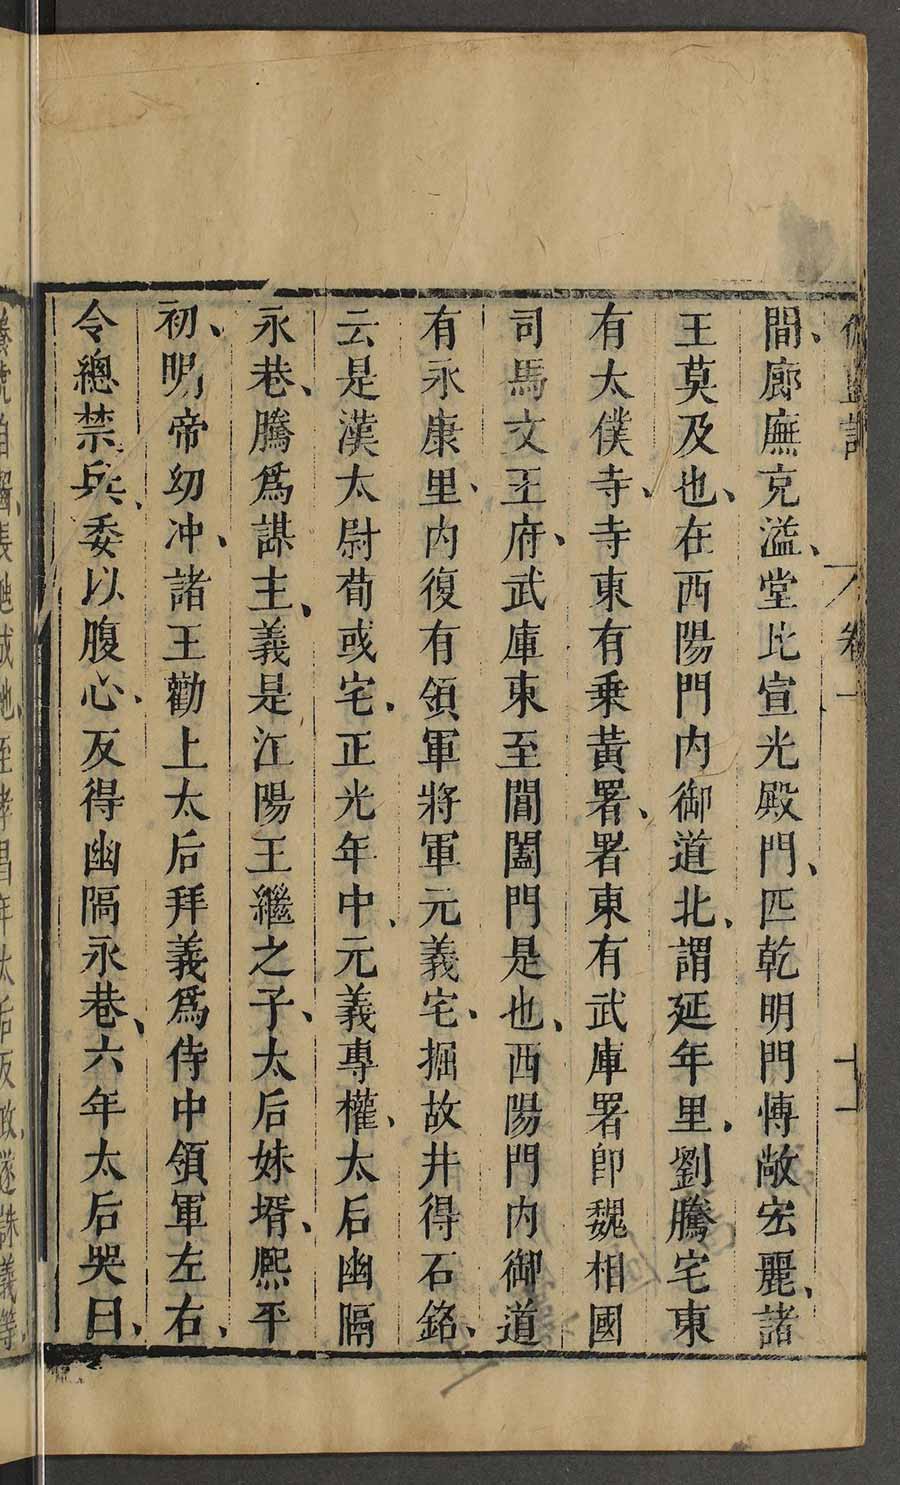 伽藍記　卷一　十一
間、廊廡充溢、堂比宣光殿門、匹乾明門博敞宏麗、諸
王莫及也、在西陽門内御道北、謂延年里、劉騰宅東
有太僕寺、寺東有乘黃署、署東有武庫署即魏相國
司馬文王府、武庫東至閶闔門是也、西陽門内御道
有永康里、内復有領軍將軍元義宅、掘故井得石銘、
云是漢太尉荀彧宅、正光年中、元義專權、太后幽隔
永巷、騰爲謀主、義是江陽王繼之子、太后妹壻、熈平
初、明帝幼冲、諸王勸上太后拜義爲侍中領軍左右、
令總禁兵、委以腹心、反得幽隔永巷、六年太后哭曰、